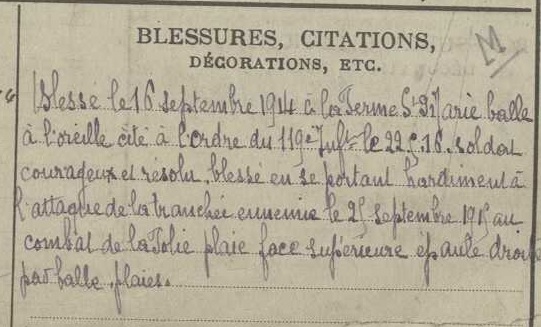 BLESSURES, CITATIONS,
DÉCORATIONS, ETC.
M
Blessé le 16 septembre 1914 à la Ferme Ste Marie balle
à l'oreille cité à l'ordre du 119e Infie le 22. .16. soldat
courageux et résolu, blessé en se portant hardiment à
l'attaque de la tranchée ennemie le 25 septembre 1915 au
combat de la Folie plaie face supérieure épaule droite
par balle, plaies.